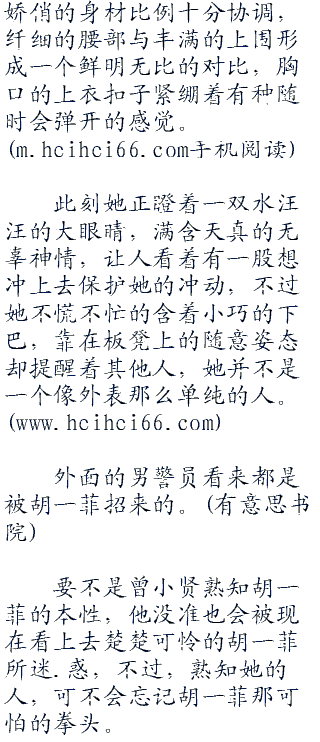 娇俏的身材比例十分协调，
纤细的腰部与丰满的上围形
成一个鲜明无比的对比，胸
口的上衣扣子紧绷着有种随
时会弹开的感觉。
(m.hcihci66.com手机阅读)
此刻她正瞪着一双水汪
汪的大眼睛，满含天真的无
辜神情，让人看着有一股想
冲上去保护她的冲动，不过
她不慌不忙的含着小巧的下
巴，靠在板凳上的随意姿态
却提醒着其他人，她并不是
一个像外表那么单纯的人。
(www.hcihci66.com)
外面的男警员看来都是
被胡一菲招来的。(有意思书
院)
要不是曾小贤熟知胡一
菲的本性，他没准也会被现
在看上去楚楚可怜的胡一菲
所迷.惑，不过，熟知她的
人，可不会忘记胡一菲那可
怕的拳头。